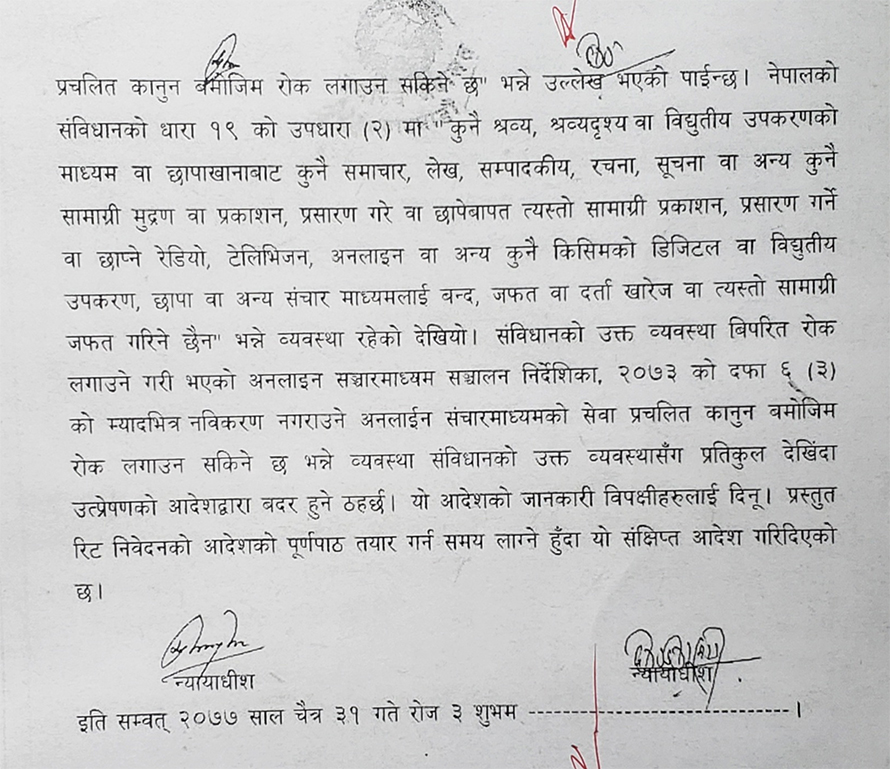 प्रचलित कानुन बमोजिम रोक लगाउन सकिने छ" भन्ने उल्लेख भएको पाईन्छ। नेपालको
संविधानको धारा १९ को उपधारा (२) मा "कुनै श्रव्य, श्रव्यदृश्य वा विद्युतीय उपकरणको
माध्यम वा छापाखानाबाट कुनै समाचार, लेख, सम्पादकीय, रचना, सूचना वा अन्य कुनै
सामाग्री मुद्रण वा प्रकाशन, प्रसारण गरे वा छापेबापत त्यस्तो सामाग्री प्रकाशन, प्रसारण गर्ने
वा छाप्ने रेडियो, टेलिभिजन, अनलाइन वा अन्य कुनै किसिमको डिजिटल वा विद्युतीय
उपकरण, छापा वा अन्य संचार माध्यमलाई बन्द, जफत वा दर्ता खारेज वा त्यस्तो सामाग्री
जफत गरिने छैन" भन्ने व्यवस्था रहेको देखियो। संविधानको उक्त व्यवस्था बिपरित रोक
लगाउने गरी भएको अनलाइन सञ्चारमाध्यम सञ्चालन निर्देशिका, २०७३ को दफा ६ (३)
को म्यादभित्र नविकरण नगराउने अनलाईन संचारमाध्यमको सेवा प्रचलित कानुन बमोजिम
रोक लगाउन सकिने छ भन्ने व्यवस्था संविधानको उक्त व्यवस्थासँग प्रतिकुल देखिंदा
उत्प्रेषणको आदेशद्वारा बदर हुने ठहर्छ। यो आदेशको जानकारी विपक्षीहरुलाई दिनू। प्रस्तुत
रिट निवेदनको आदेशको पूर्णपाठ तयार गर्न समय लाग्ने हुँदा यो संक्षिप्त आदेश गरिदिएको
छ।
न्यायाधीश
न्यायाधीश
इति सम्वत् २०७७ साल चैत्र ३१ गते रोज ३ शुभम -------------------------------।